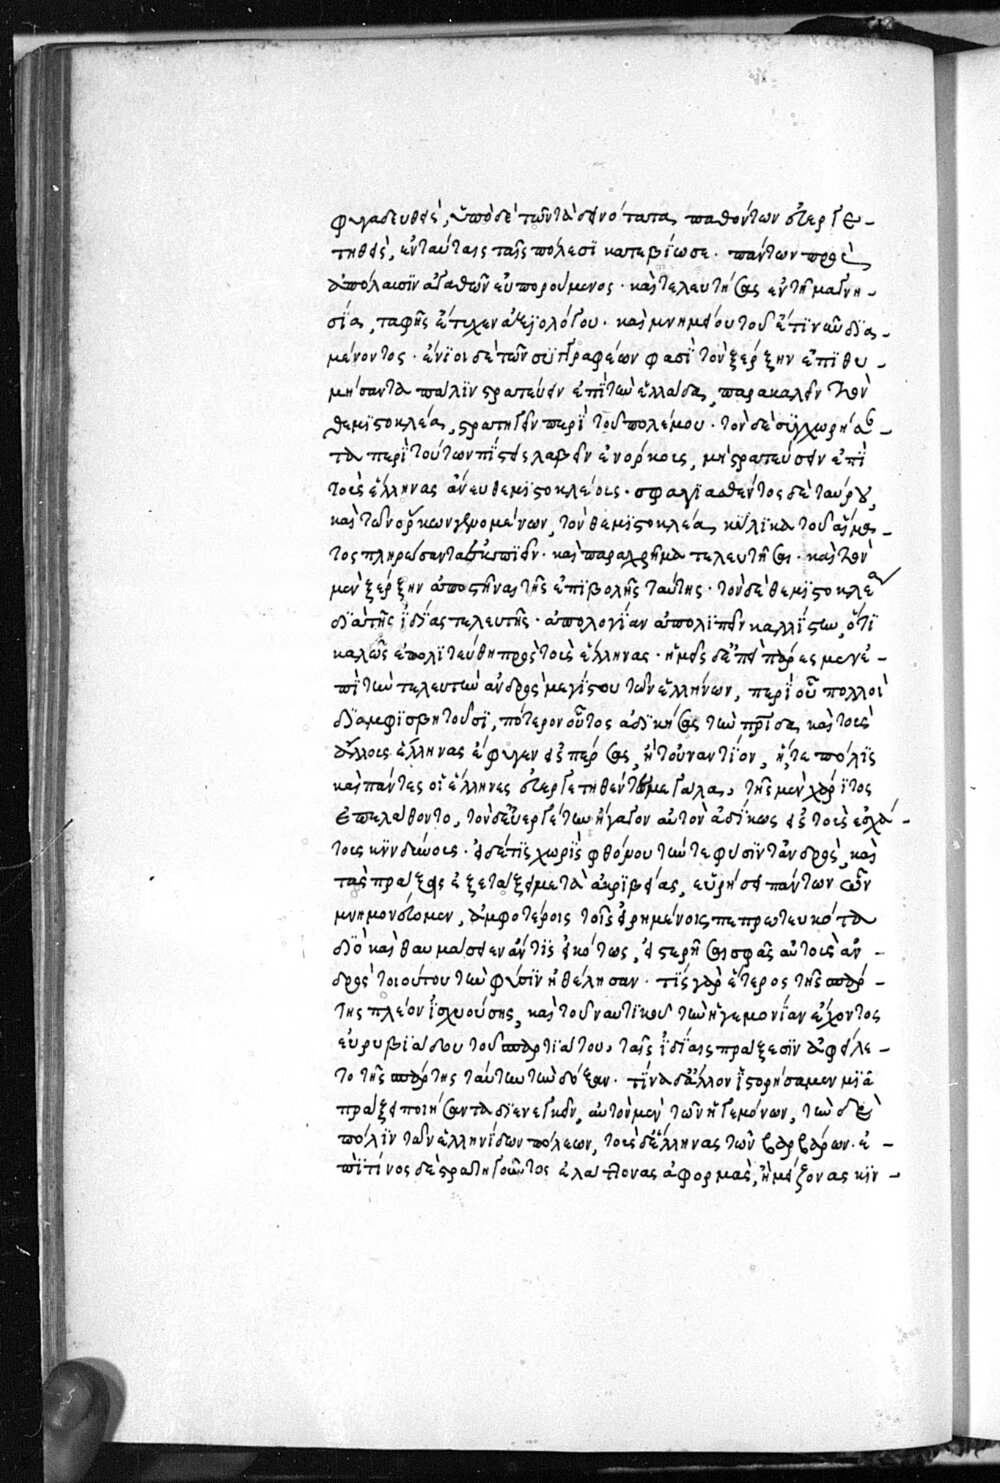 φυγαδευθεὶς, ὑπὸ δὲ τῶν τὰ δεινότατα παθόντων εὐεργε-
τηθεὶς, ἐν ταύταις ταῖς πόλεσι κατεβίωσε. πάντων πρὸς
ἀπόλαυσιν ἀγαθῶν εὐπορούμενος. καὶ τελευτήσας ἐν τῆ μαγνη-
σία, ταφῆς ἔτυχεν ἀξιολόγου. καὶ μνημείου τοῦ ἔτι νῦν δια-
μένοντος. ἔνιοι δὲ τῶν συγγραφέων φασὶ τὸν ξέρξην ἐπιθυ-
μήσαντα πάλιν στρατεύειν ἐπὶ τὴν ἑλλάδα, παρακαλεῖν τὸν
θεμιστοκλέα, στρατηγεῖν περὶ τοῦ πολέμου. τὸν δὲ συγχωρήσαν-
τα περὶ τούτων πίστεις λαβεῖν ἐνόρκους, μὴ στρατεύσειν ἐπὶ
τοὺς ἕλληνας ἄνευ θεμιστοκλέους. σφαγιασθέντος δὲ ταύρου,
καὶ τῶν ὅρκων γενομένων, τὸν θεμιστοκλέα κύλικα τοῦ αἵμα-
τος πληρώσαντα ἐκπιεῖν. καὶ παραχρῆμα τελευτῆσαι. καὶ τὸν
μὲν ξέρξην ἀποστῆναι τῆς ἐπιβολῆς ταύτης. τὸν δὲ θεμιστοκλέα
διὰ τῆς ἰδίας τελευτῆς. ἀπολογίαν ἀπολιπεῖν καλλίστην, ὅτι
καλῶς ἐπολιτεύθη πρὸς τοὺς ἕλληνας. ἡμεῖς δὲ ἐπεὶ πάρεσμεν ἐ-
πὶ τὴν τελευτὴν ἀνδρὸς μεγίστου τῶν ἑλλήνων, περὶ οὗ πολλοὶ
διαμφισβητοῦσι, πότερον οὗτος ἀδικήσας τὴν πατρίδα καὶ τοὺς
ἄλλους ἕλληνας ἔφυγεν εἰς πέρσας, ἢ τοὐναντίον, ἥ τε πόλις
καὶ πάντες οἱ ἕλληνες εὐεργετηθέντες μεγάλα, τῆς μὲν χάριτος
ἐπελάθοντο, τὸν δὲ εὐεργέτην ἤγαγον αὐτὸν ἀδίκως εἰς τοὺς ἐσχά-
τους κινδύνους. εἰ δέ τις χωρὶς φθόνου τήν τε φύσιν τἀνδρὸς, καὶ
τὰς πράξεις ἐξετάζει μετὰ ἀκριβείας, εὑρήσει πάντων ὧν
μνημονεύομεν, ἀμφοτέροις τοῖς εἰρημένοις πεπρωτευκότα
διὸ καὶ θαυμάσειεν ἄν τις εἰκότως, εἰ στερῆσαι σφᾶς αὐτοὺς ἀν-
δρὸς τοιούτου τὴν φύσιν ἠθέλησαν. τίς γὰρ ἕτερος τῆς σπάρ-
της πλέον ἰσχυούσης, καὶ τοῦ ναυτικοῦ τὴν ἡγεμονίαν ἔχοντος
εὐρυβιάδου τοῦ σπαρτιάτου, ταῖς ἰδίαις πράξεσιν ἀφείλε-
το τῆς σπάρτης ταύτην τὴν δόξαν. τίνα δ' ἄλλον ἱστορήσαμεν μιᾶ
πράξει ποιήσαντα διενεγκεῖν, αὐτὸν μὲν τῶν ἡγεμόνων, τὴν δὲ
πόλιν τῶν ἑλληνίδων πόλεων, τοὺς δ' ἕλληνας τῶν βαρβάρων. ἐ-
πὶ τίνος δὲ στρατηγοῦντος ἐλάττονας ἀφορμὰς, ἢ μείζονας κιν-